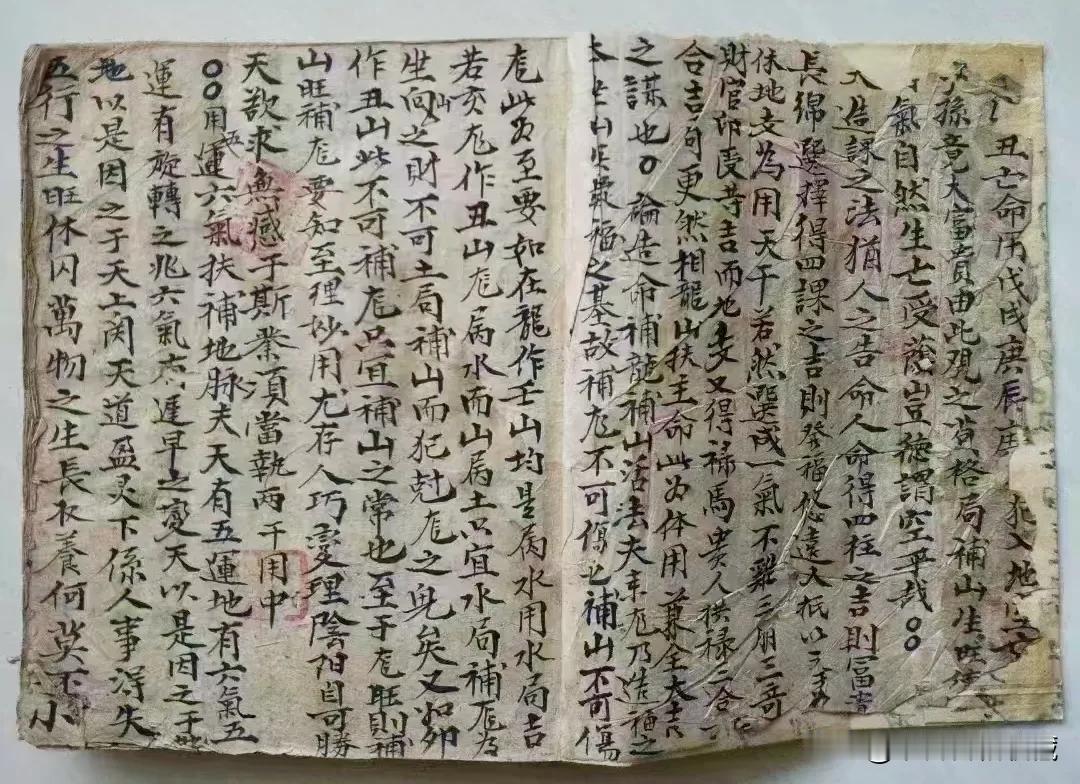 丑亡命用戊戌庚辰庚 犯入地
孫竟大富貴由此观之 格局補山生旺
氣自然生亡受蔭豈德謂空乎哉〇〇
造課之法猶人之告命人命得四柱之吉則富貴
長綿選擇得四課之吉則登福悠遠大抵以
休地支為用天干若然選成一氣不雜三朋三奇
財官印長等吉而地支又得禄馬貴人拱禄三合
合吉可更然相龍山扶主命此為体用兼全大吉
之謀也〇論造命補龍補山活法夫年尨乃造福之
山生 福之基故補尨不可傷也補山不可傷
尨此為至要如在龍作壬山均是属水用水局吉
若亥尨作丑山尨属水而山属土只宜水局補尨為
生向山之財不可土局補山而犯尅尨之兇矣又如卯
作丑山此不可補尨只宜補山之常也至于尨旺則補
山旺補尨要知至理妙用尤存人巧变理陰阳自可勝
天欲求無感于斯業湏當執两干用中
〇〇用五運六氣扶補地脉夫天有五運地有六氣五
運有旋轉之兆六氣有遲早之变天以是因之于
地以是因之于天上関天道盈灵下係人事得失
五行之生旺休囚萬物之生長收養何莫不小